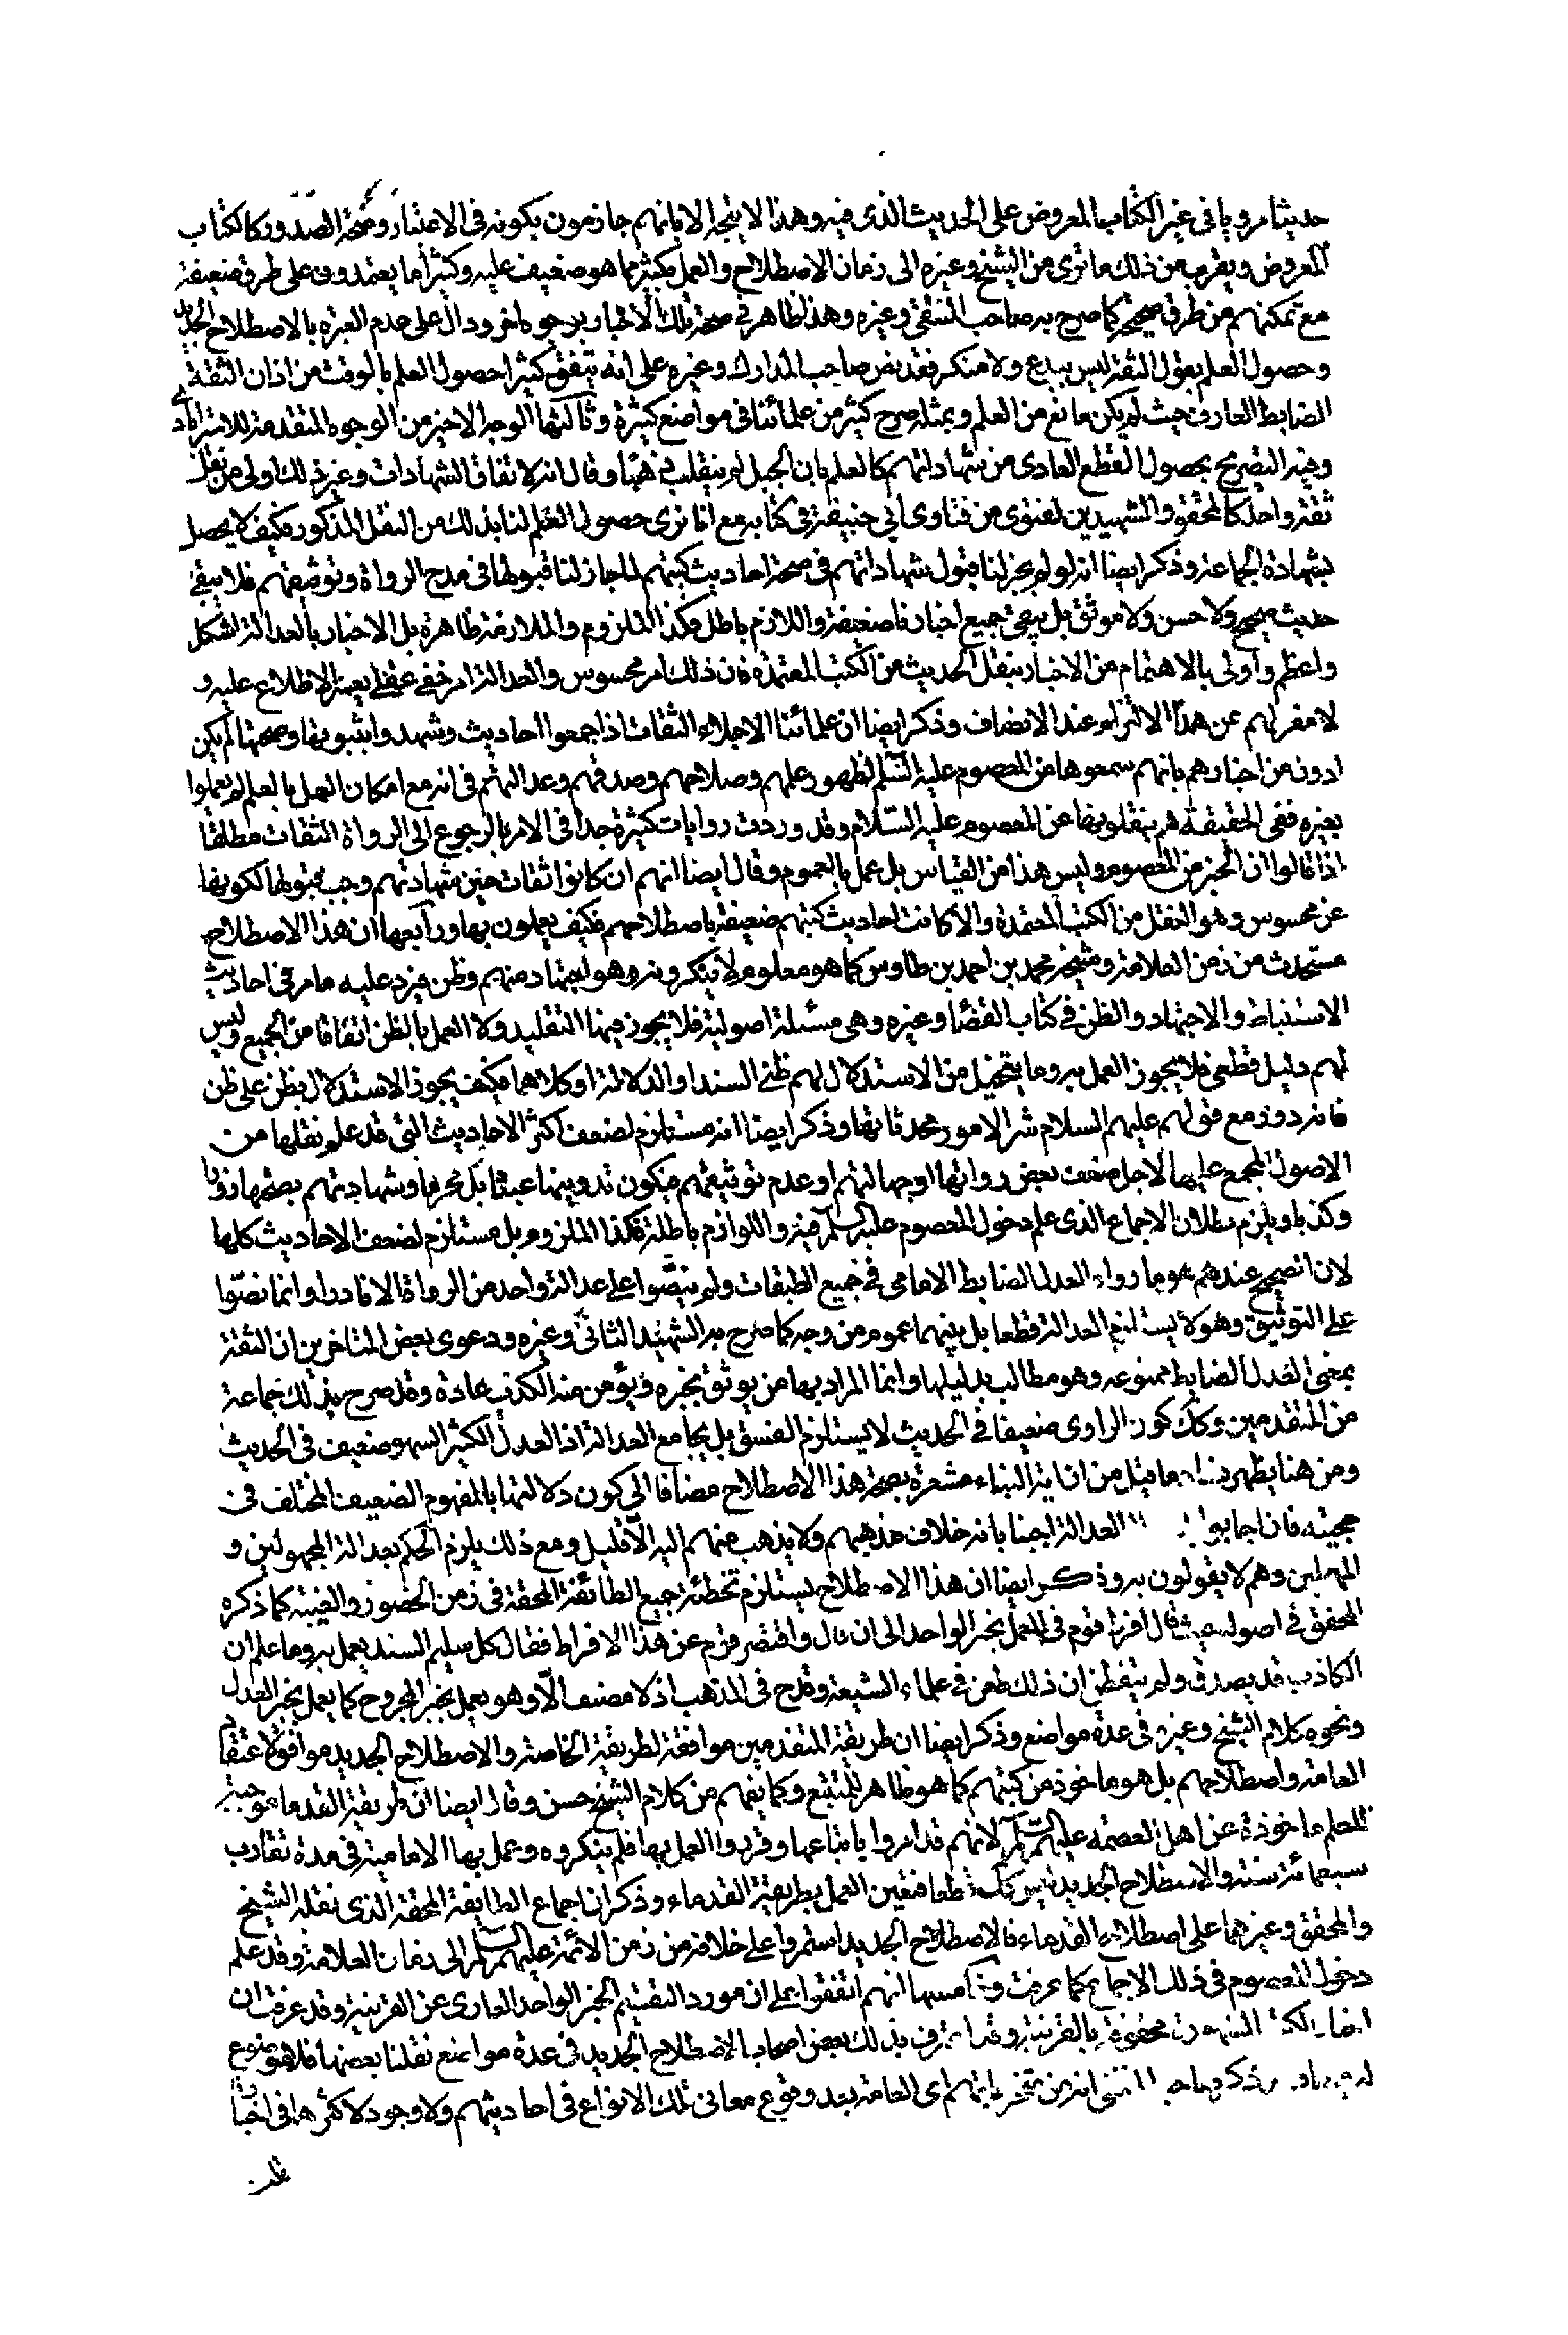 حديثا مرويا في غير الكتاب المعروض على الحديث الذى فيه وهذا لا يتجه الا بانهم جازمون بكونه فى الاعتبار وصحة الصدور كالكتاب
المعروض ويقرب من ذلك ما ترى من الشيخ وغيره الى زمان الاصطلاح والعمل بكثير مما هو ضعيف عليه وكثيرا ما يعتمدون على طرق ضعيفة
مع تمكنهم من طرق صحيحة كما صرح به صاحب المنتقى وغيره وهذا ظاهر في صحة تلك الاخبار بوجوه اخر ودال على عدم العبرة بالاصطلاح الجديد
وحصول العلم بقول الثقة ليس ببدع ولا منكر فقد نص صاحب المدارك وغيره على انه يتفق كثيرا حصول العلم بالوقت من اذان الثقة
الضابط العارف حيث لم يكن مانع من العلم وبمثله صرح كثير من علمائنا في مواضع كثيرة وثالثها الوجه الاخير من الوجوه المتقدمة للاسترابادى
وفيه التصريح بحصول القطع العادى من شهاداتهم كالعلم بان الجبل لم ينقلب ذهبا وقال انه لا تفاق الشهادات وغير ذلك اولى من نقل
ثقة واحد كالمحقق والشهيدين لفتوى من فتاوى ابي حنيفة في كتابه مع انا نرى حصول العلم لنا بذلك من النقل المذكور فكيف لا يحصل
بشهادة الجماعة وذكر ايضا انه لو لم يجز لنا قبول شهاداتهم فى صحة احاديث كتبهم لما جاز لنا قبولها في مدح الرواة وتوثيقهم فلا يبقى
حديث صحيح ولا حسن ولا موثق بل يبقى جميع اخبارنا ضعيفة واللازم باطل فكذا الملزوم والملازمة ظاهرة بل الاخبار بالعدالة اشكل
واعظم واولى بالاهتمام من الاخبار بنقل الحديث من الكتب المعتمدة فان ذلك امر محسوس والعدالة امر خفى عقلى يعسر الاطلاع عليه و
لا مفر لهم عن هذا الالزام عند الانصاف وذكر ايضا ان علمائنا الاجلاء الثقات اذا جمعوا احاديث وشهدوا بثبوتها وصحتها لم يكن
ادون من اخبارهم بانهم سمعوها من المعصوم عليه السلم لظهور علمهم وصلاحهم وصدقهم وعدالتهم فى انه مع امكان العمل بالعلم لم يعملوا
بغيره ففى الحقيقة هم ينقلونها عن المعصوم عليه السلام وقد وردت روايات كثيرة جدا فى الامر بالرجوع الى الرواة الثقات مطلقا
اذا قالوا ان الخبر من المعصوم وليس هذا من القياس بل عمل بالعموم وقال ايضا انهم ان كانوا ثقات حين شهادتهم وجب قبولها لكونها
عن محسوس وهو النقل من الكتب المعتمدة والا كانت احاديث كتبهم ضعيفة باصطلاحهم فكيف يعملون بها ورابعها ان هذا الاصطلاح
مستحدث من زمن العلامة وشيخه محمد بن احمد بن طاوس كما هو معلوم لا ينكرونه وهو اجتهاد منهم وظن فيرد عليه ما مر في احاديث
الاستنباط والاجتهاد والظن في كتاب القضا وغيره وهى مسئلة اصولية فلا يجوز فيها التقليد ولا العمل بالظن اتفاقا من الجميع وليس
لهم دليل قطعى فلا يجوز العمل به وما يتخيل من الاستدلال لهم ظنى السند او الدلالة او كلاهما فكيف يجوز الاستدلال بظن على ظن
فانه دور مع قولهم عليهم السلام شر الامور محدثاتها وذكر ايضا انه مستلزم لضعف اكثر الاحاديث التي قد علم نقلها من
الاصول المجمع عليها لاجل ضعف بعض رواتها او جهالتهم او عدم توثيقهم فيكون تدوينها عبثا بل محرما وشهادتهم بصحتها زورا
وكذبا ويلزم بطلان الاجماع الذى علم دخول المعصوم عليه السلم فيه واللوازم باطلة فكذا الملزوم بل مستلزم لضعف الاحاديث كلها
لان الصحيح عندهم هو ما رواه العدل الضابط الامامى في جميع الطبقات ولم ينصوا على عدالة واحد من الرواة الا نادرا وانما نصوا
على التوثيق وهو لا يستلزم العدالة قطعا بل بينهما عموم من وجه كما صرح به الشهيد الثانى وغيره ودعوى بعض المتاخرين ان الثقة
بمعنى العدل الضابط ممنوعه وهو مطالب بدليلها وانما المراد بها من يوثق بخبره ويؤمن منه الكذب عادة وقد صرح بذلك جماعة
من المتقدمين وكك كون الراوى ضعيفا في الحديث لا يستلزم الفسق بل يجامع العدالة اذ العدل الكثير السهو ضعيف فى الحديث
ومن هنا يظهر ما قيل من ان اية النباء مشعرة بصحة هذا الاصطلاح مضافا الى كون دلالتها بالمفهوم الضعيف المختلف فى
حجيته فان اجابوا العدالة اجبنا بانه خلاف مذهبهم ولا يذهب منهم اليه الا قليل ومع ذلك يلزم الحكم بعدالة المجهولين و
المهملين وهم لا يقولون به وذكر ايضا ان هذا الاصطلاح يستلزم تخطئة جميع الطائفة المحقة فى زمن الحضور والغيبة كما ذكره
المحقق في اصوله حيث قال افرط قوم فى العمل بخبر الواحد الى ان قال واقتصر قوم عن هذا الافراط فقال كل سليم السند يعمل به وما علم ان
الكاذب قد يصدق ولم يتفطن ان ذلك طعن في علماء الشيعة وقدح فى المذهب اذ لا مصنف الا وهو يعمل بخبر المجروح كما يعمل بخبر العدل
ونحوه كلام الشيخ وغيره فى عدة مواضع وذكر ايضا ان طريقة المتقدمين موافقة لطريقة الخاصة والاصطلاح الجديد موافق لاعتقاد
العامة واصطلاحهم بل هو ماخوذ من كتبهم كما هو ظاهر للمتتبع وكما يفهم من كلام الشيخ حسن وقال ايضا ان طريقة القدما موجبة
للعلم ماخوذة عن اهل العصمة عليهم السلم لانهم قد امروا باتباعها وقرروا العمل بها فلم ينكروه وعمل بها الامامية فى مدة تقارب
سبعمائة سنة والاصطلاح الجديد ليس كك قطعا فتعين العمل بطريقة القدماء وذكر ان اجماع الطايفة المحقة الذى نقله الشيخ
والمحقق وغيرهما على اصطلاح القدماء فالاصطلاح الجديد استمروا على خلافه من زمن الائمة عليهم السلم الى زمان العلامة وقد علم
دخول المعصوم فى ذلك الاجماع كما عرفت وخامسها انهم اتفقوا على ان مورد التقسيم الخبر الواحد العارى عن القرينة وقد عرفت ان
اخبار الكتب المشهورة محفوفة بالقرينة وقد اعترف بذلك بعض اصحاب الاصطلاح الجديد فى عدة مواضع نقلنا بعضها فلا موضوع
ذكر صاحب المنتقى انه من متخرجاتهم اى العامة بعد وقوع معانى تلك الانواع فى احاديثهم ولا وجود لاكثرها فى اخبارنا